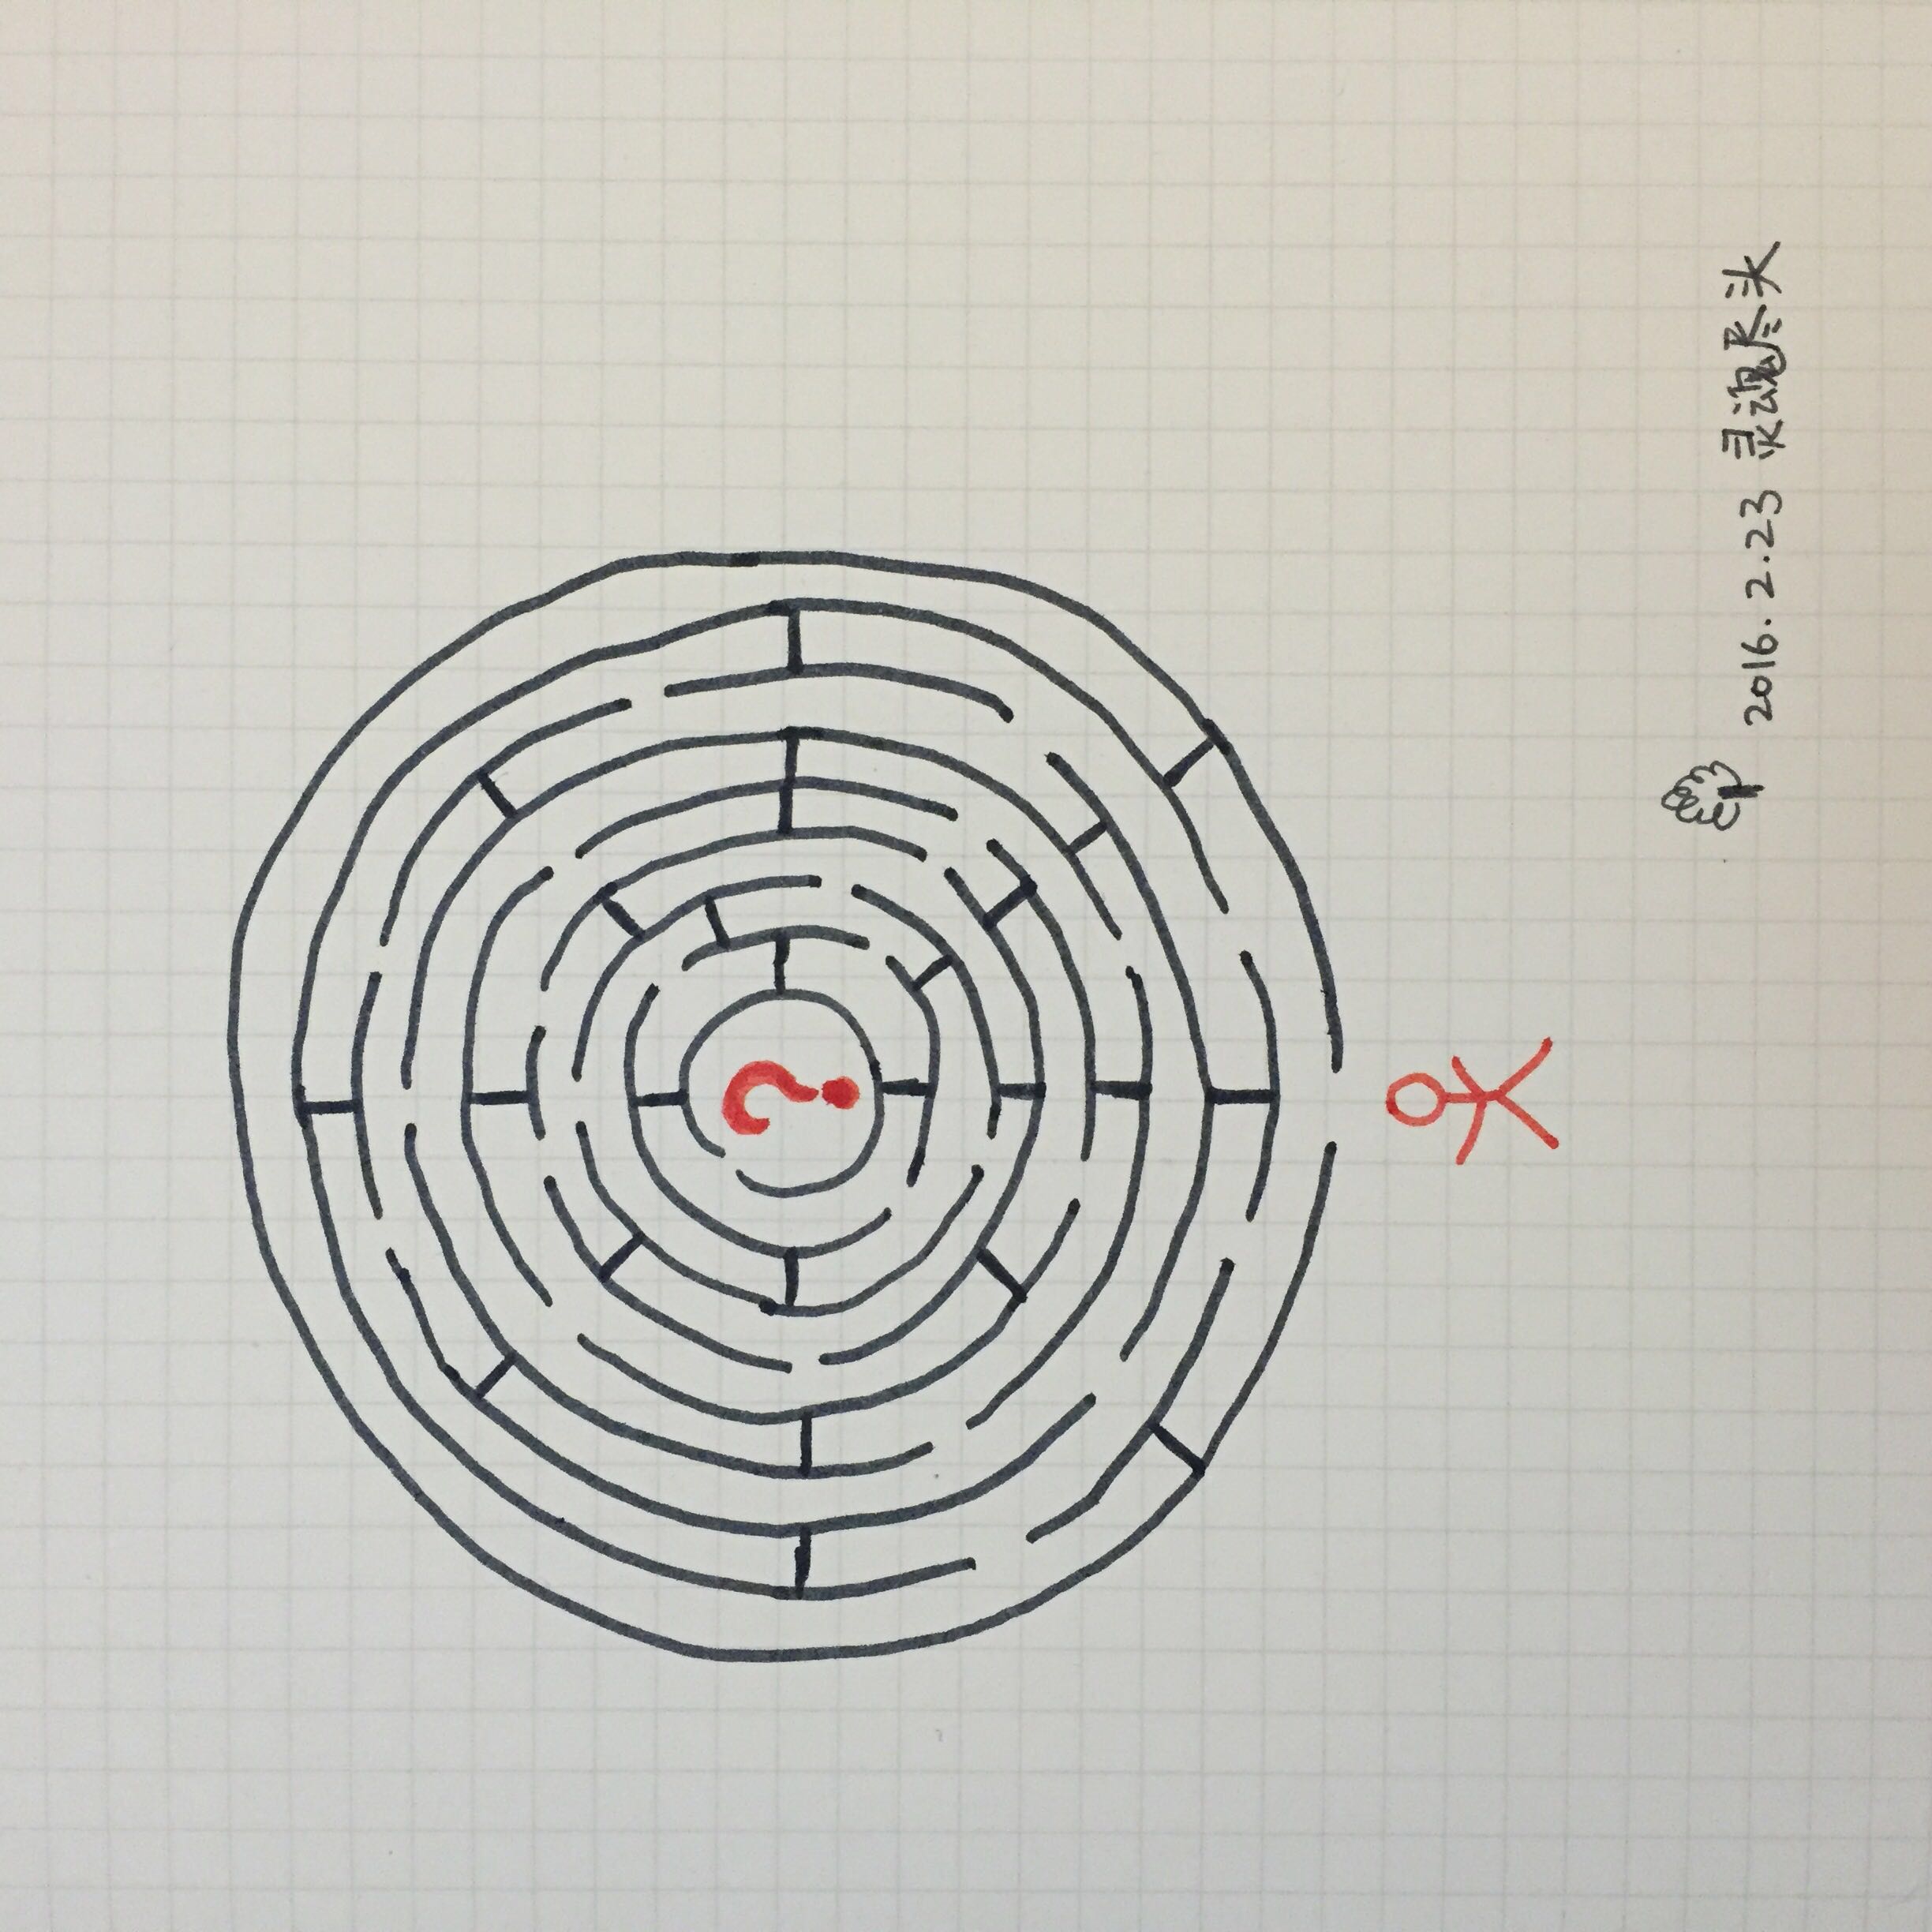 ?
2016.2.23 灵魂尽头